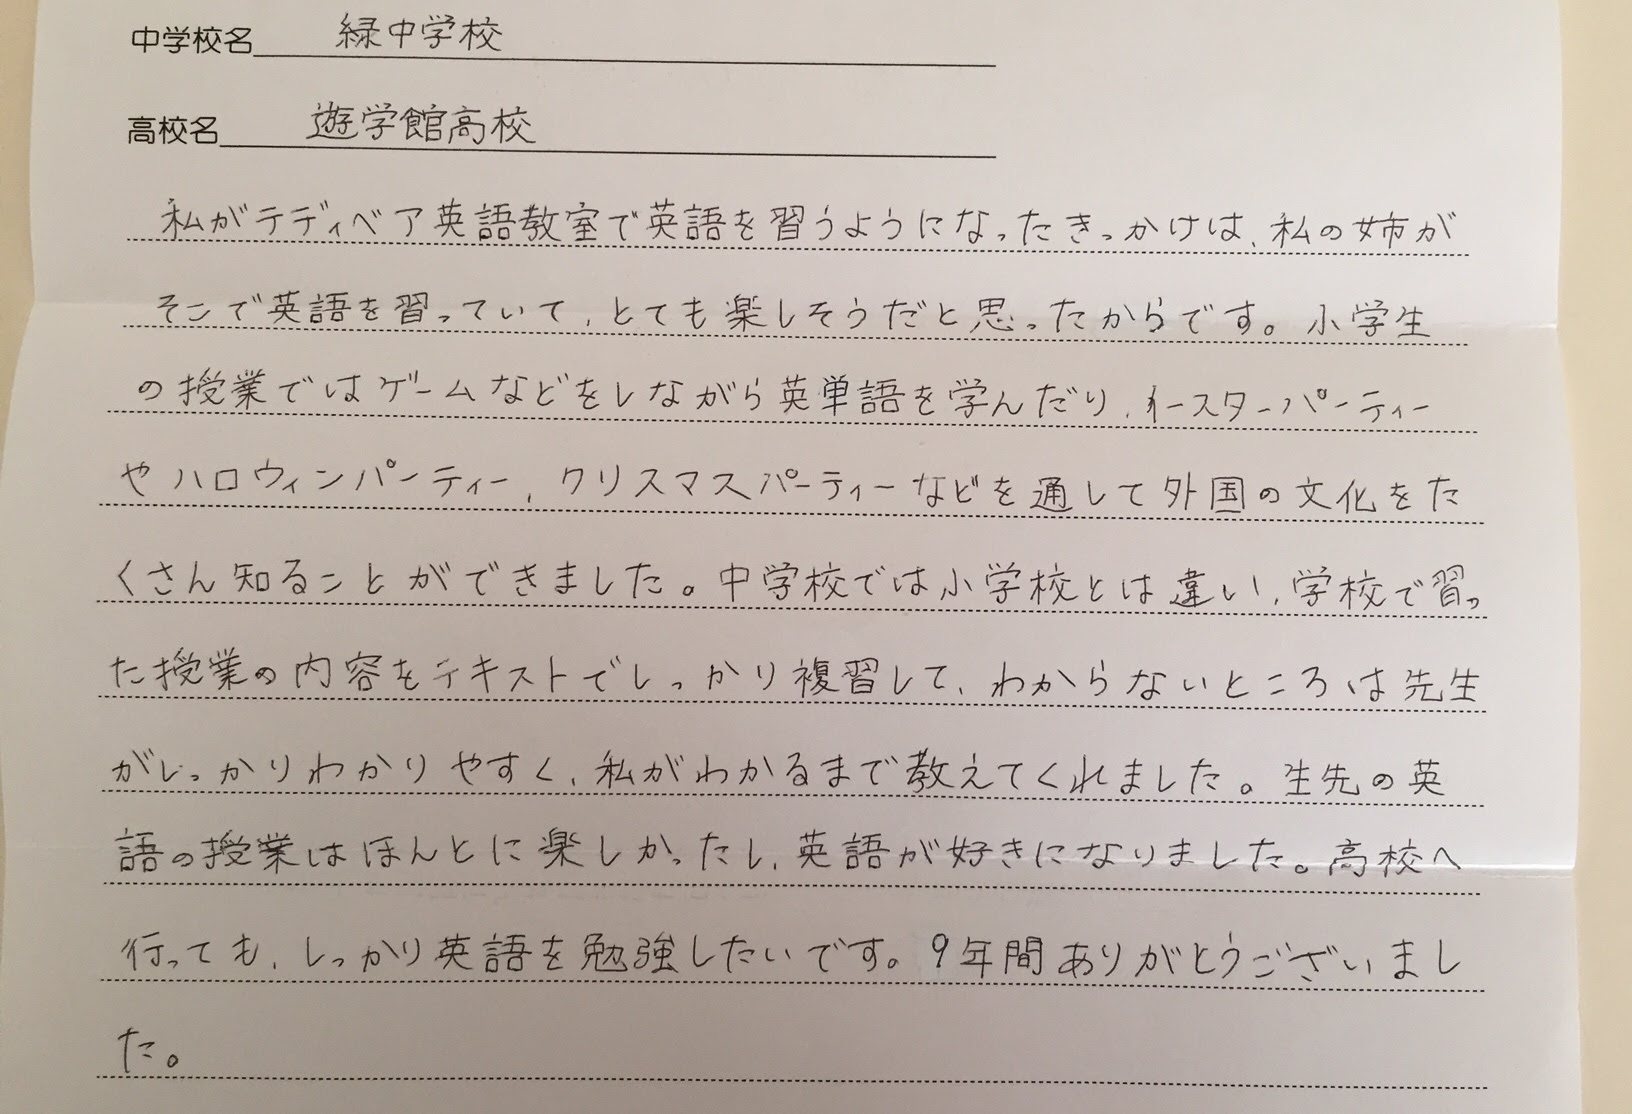 中学校名 緑中学校
高校名 遊学館高校
私がテディベア英語教室で英語を習うようになったきっかけは、私の姉が
そこで英語を習っていて、とても楽しそうだと思ったからです。小学生
の授業ではゲームなどをしながら英単語を学んだり、イースターパーティー
やハロウィンパーティー、クリスマスパーティーなどを通して外国の文化をた
くさん知ることができました。中学校では小学校とは違い、学校で習っ
た授業の内容をテキストでしっかり複習して、わからないところは先生
がしっかりわかりやすく、私がわかるまで教えてくれました。生先の英
語の授業はほんとに楽しかったし、英語が好きになりました。高校へ
行っても、しっかり英語を勉強したいです。9年間ありがとうございまし
た。